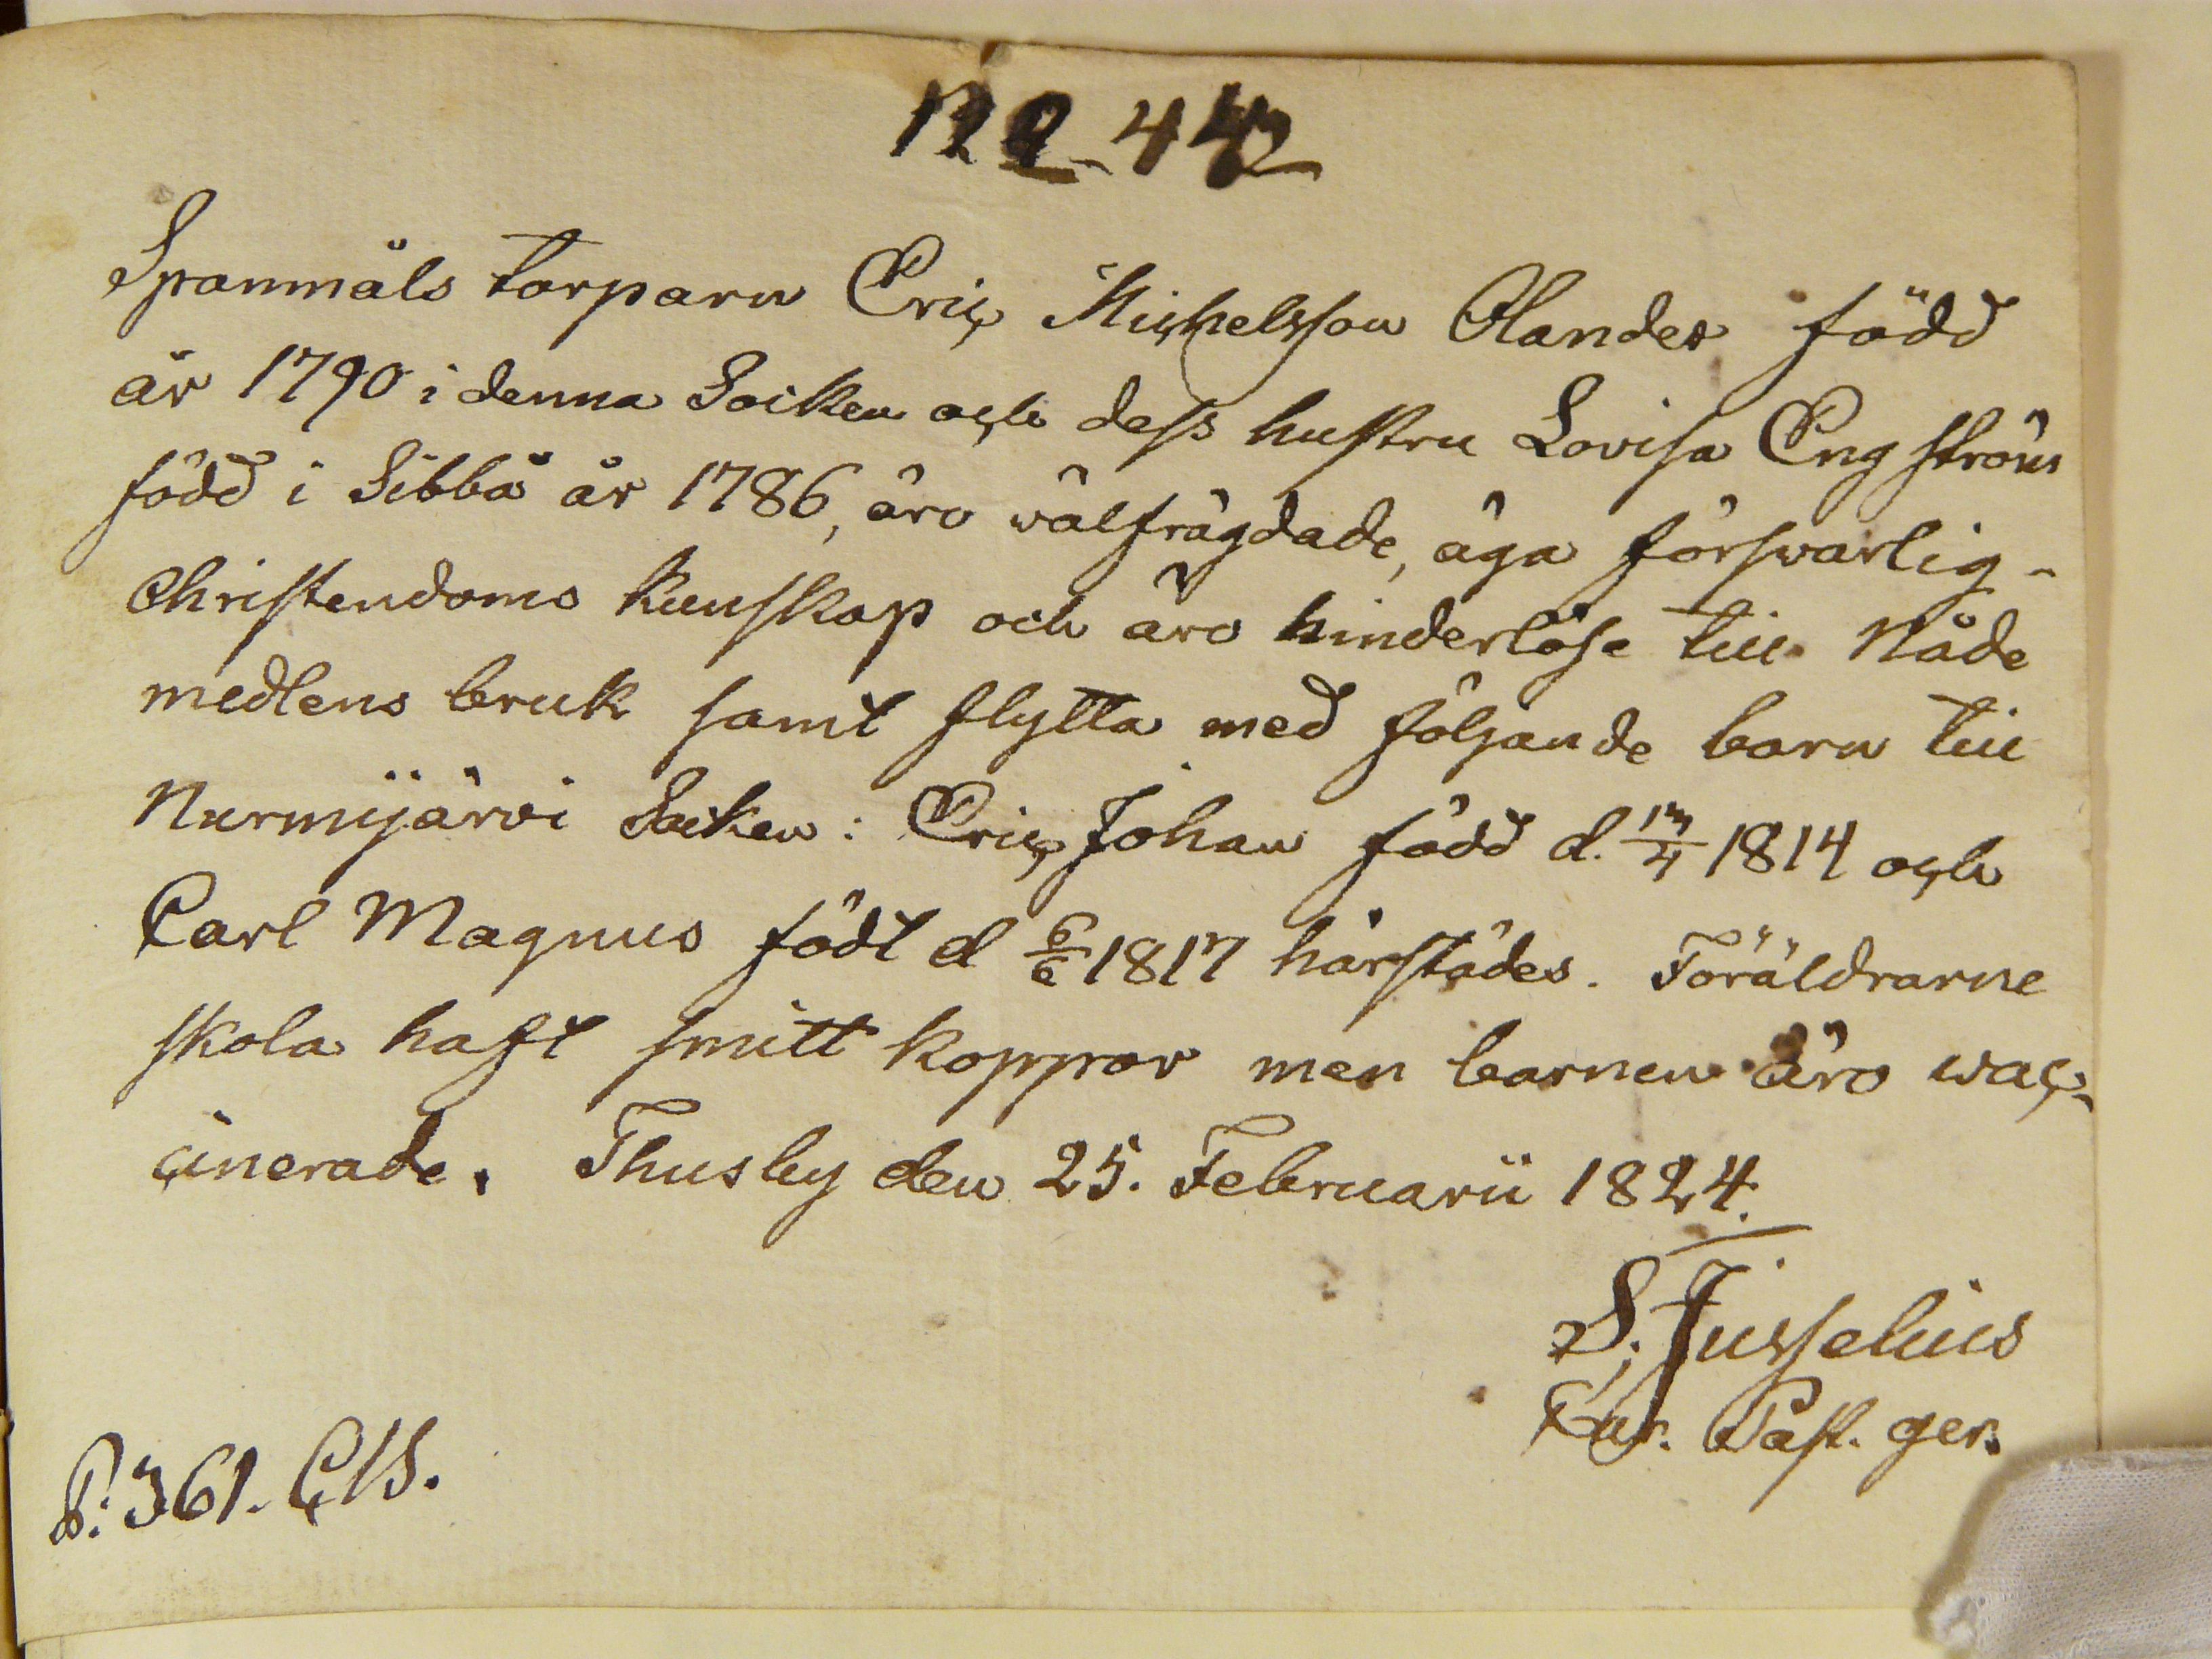 Spanmåls torparn Eric Michelsson Olander född
år 1790 i denna Socken och dess hustru Lovisa Engström
född i Sibbå år 1786, äro wälfrägdade, äga förswarlig-
Christendoms kunskap och äro hinderlöse till Nåde
medlens bruk samt flytta med följande barn till
Nurmijärvi Socken: Eric Johan född d. 17/4 1814 och
Carl Magnus född d 6/6 1817 härstädes. Föräldrarne
skola haft smitt koppor men barnen äro wac-
cinerade. Thusby den 25. Februarii 1824.
S. Jusselius
Past. ger.
P. 361.